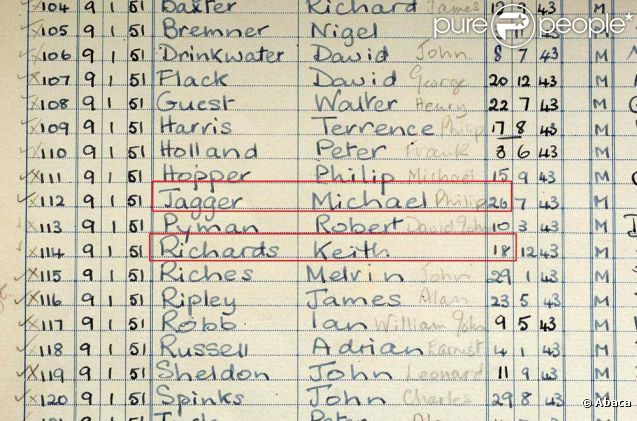 104 9 1 51 Baxter Richard James 12 43 M
pure people
105 9 1 51 Bremner Nigel 11 43 M
106 9 1 51 Drinkwater David John 8 7 43 M
107 9 1 51 Flack David George 20 12 43 M
108 9 1 51 Guest Walter Henry 22 7 43 M
109 9 1 51 Harris Terrence Philip 17 8 43 M
110 9 1 51 Holland Peter Frank 3 6 43 M
111 9 1 51 Hopper Philip Michael 15 9 43 M
112 9 1 51 Jagger Michael Philip 26 7 43 M
113 9 1 51 Pyman Robert David John 10 3 43 M
114 9 1 51 Richards Keith 18 12 43 M
115 9 1 51 Riches Melvin John 29 1 43 M
116 9 1 51 Ripley James Alan 23 5 43 M
117 9 1 51 Robb Ian William John 9 5 43 M
118 9 1 51 Russell Adrian Earnist 4 1 43 M
119 9 1 51 Sheldon John Leonard 11 9 43 M
120 9 1 51 Spinks John Charles 29 8 43 M
© Abaca